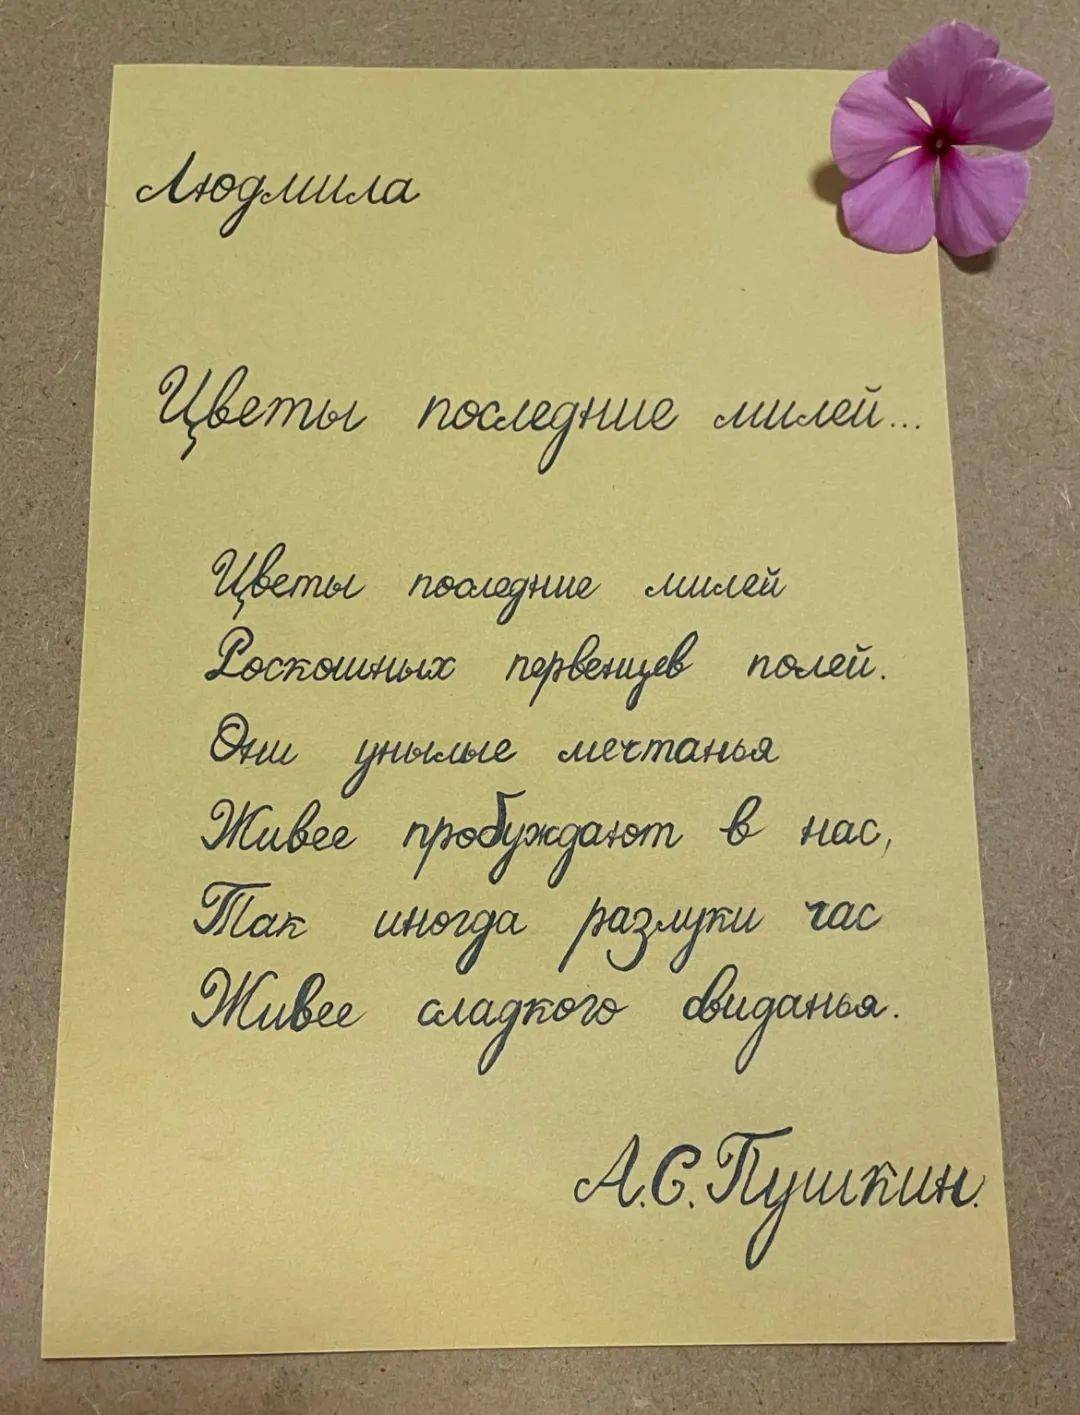 Людмила
Цветы последние милей...
Цветы последние милей
Роскошных первенцев полей.
Они унылые мечтанья
Живее пробуждают в нас,
Так иногда разлуки час
Живее сладкого свиданья.
А.С.Пушкин.